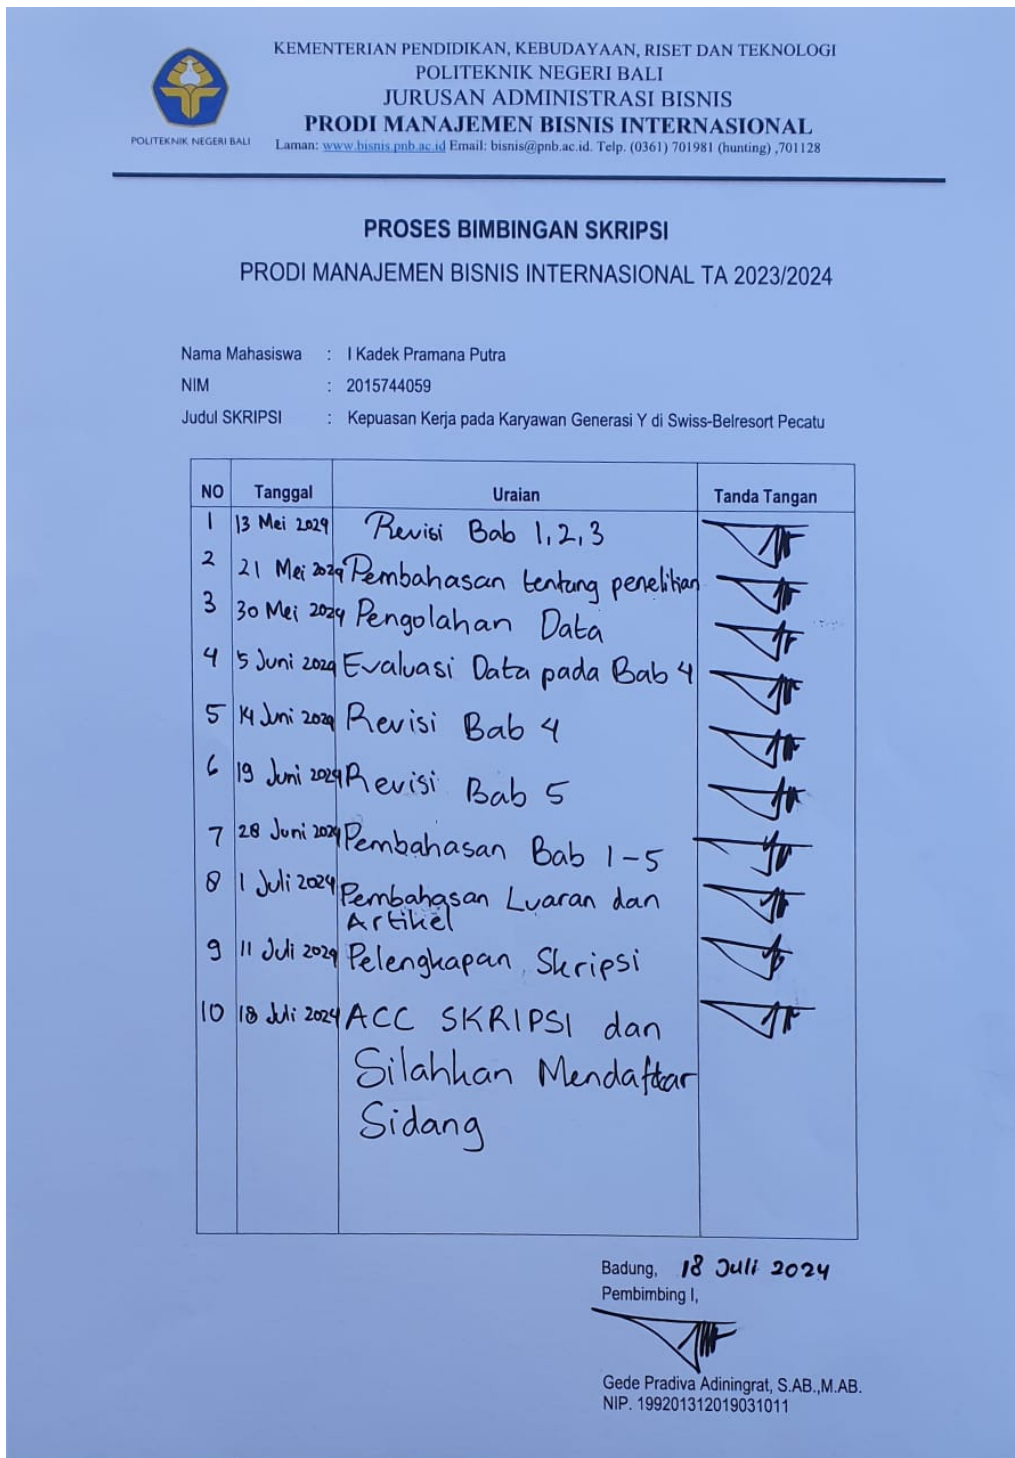 KEMENTERIAN PENDIDIKAN, KEBUDAYAAN, RISET DAN TEKNOLOGI
POLITEKNIK NEGERI BALI
JURUSAN ADMINISTRASI BISNIS
PRODI MANAJEMEN BISNIS INTERNASIONAL
POLITEKNIK NEGERI BALI
Laman: www.bisnis.pnb.ac.id Email: bisnis@pnb.ac.id. Telp. (0361) 701981 (hunting) ,701128
PROSES BIMBINGAN SKRIPSI
PRODI MANAJEMEN BISNIS INTERNASIONAL TA 2023/2024
Nama Mahasiswa : I Kadek Pramana Putra
NIM : 2015744059
Judul SKRIPSI : Kepuasan Kerja pada Karyawan Generasi Y di Swiss-Belresort Pecatu
NO Tanggal Uraian Tanda Tangan
1 13 Mei 2024 Revisi Bab 1,2,3
2 21 Mei 2024 Pembahasan tentang penelitian
3 30 Mei 2024 Pengolahan Data
4 5 Juni 2024 Evaluasi Data pada Bab 4
5 14 Juni 2024 Revisi Bab 4
6 19 Juni 2024 Revisi Bab 5
7 28 Juni 2024 Pembahasan Bab 1-5
8 1 Juli 2024 Pembahasan Luaran dan
Artikel
9 11 Juli 2024 Pelengkapan Skripsi
10 18 Juli 2024 ACC SKRIPSI dan
Silahkan Mendaftar
Sidang
Badung, 18 Juli 2024
Pembimbing I,
Gede Pradiva Adiningrat, S.AB.,M.AB.
NIP. 199201312019031011